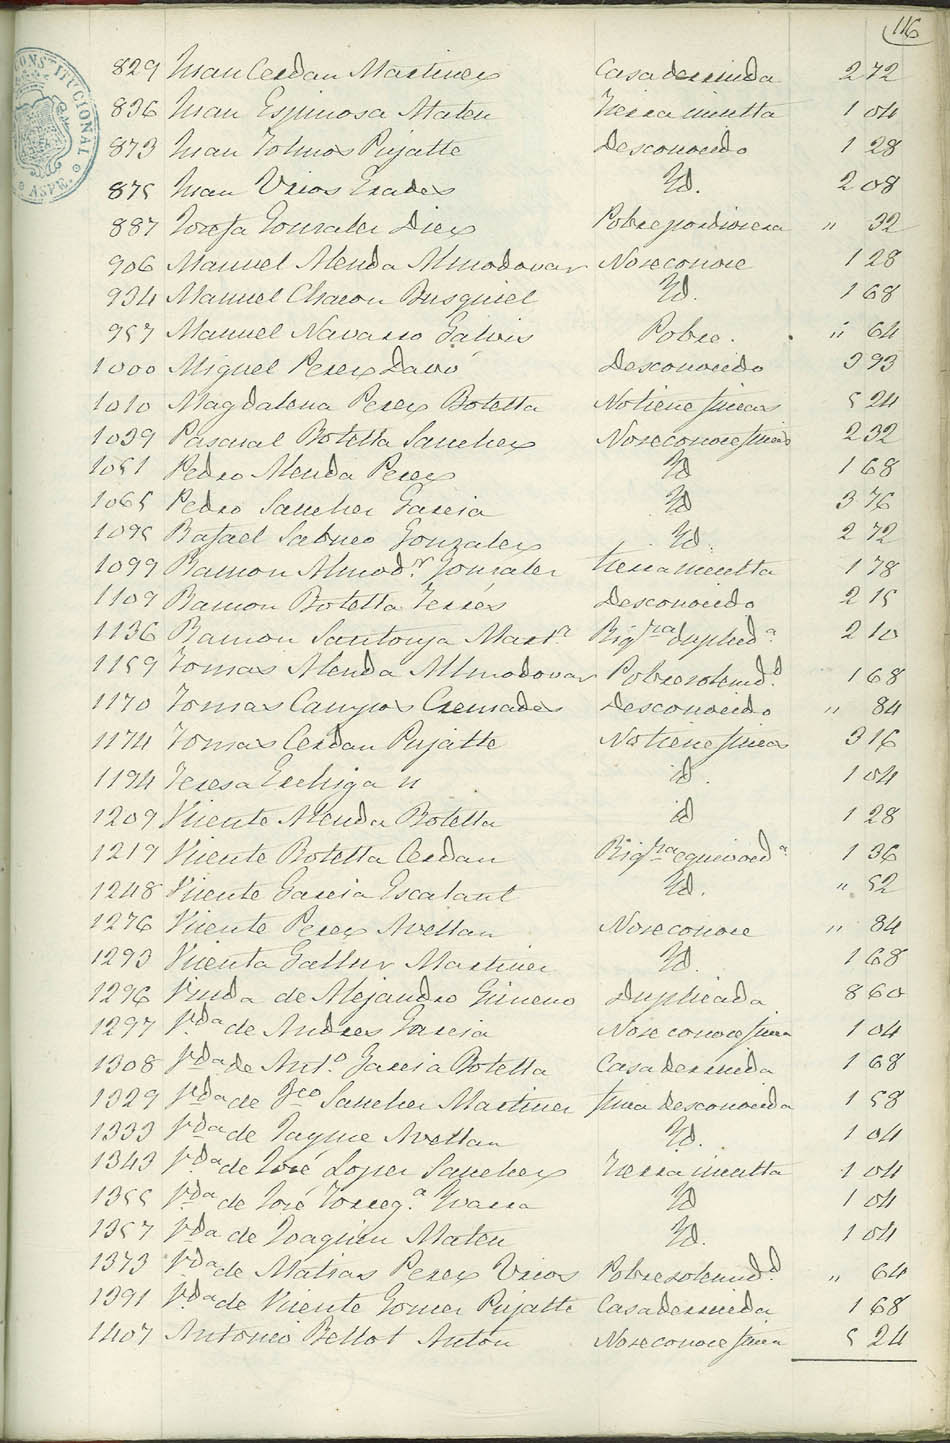 116
CONSTITUCIONAL ASPE.
829 Juan Cerdan Martinez Casa derruida 2 72
836 Juan Espinosa Mateu Tierra inculta 1 04
873 Juan Tolmos Pujalte Desconocido 1 28
875 Juan Urios Prades Yd. 2 08
887 Josefa Gonzalez Diez Pobre pordiosera " 32
906 Manuel Alenda Almodovar No se conoce 1 28
934 Manuel Chacon Busquiel Yd. 1 68
957 Manuel Navarro Galvis Pobre. " 64
1000 Miguel Perez Davó Desconocido 3 93
1010 Magdalena Perez Botella No tiene fincas 5 24
1039 Pascual Botella Sanchez No se conoce fincas 2 32
1051 Pedro Alenda Perez Yd 1 68
1065 Pedro Sanchez Garcia Yd 3 76
1095 Rafael Sabuco Gonzalez Yd. 2 72
1099 Ramon Almod.r Gonzalez tierra inculta 1 78
1109 Ramon Botella Terrés Desconocido 2 15
1136 Ramon Santonja Mart.n Riq.za duplicd.a 2 10
1159 Tomas Alenda Almodovar Pobre solemd.d 1 68
1170 Tomas Campos Cremades Desconocido " 84
1174 Tomas Cerdan Pujalte No tiene fincas 3 16
1194 Teresa id. 1 04
1209 Vicente Alenda Botella id 1 28
1219 Vicente Botella Cerdan Riq.za equivocd.a 1 36
1248 Vicente Garcia Escalant Yd. " 52
1276 Vicente Perez Avellan No se conoce " 84
1293 Vicenta Gallur Martinez Yd. 1 68
1296 Viuda de Alejandro Gimeno Duplicada 8 60
1297 V.da de Andres Garcia No se conoce finca 1 04
1308 V.da de Ant.o Garcia Botella Casa derruida 1 68
1329 V.da de Fco Sanchez Martinez finca desconocida 1 58
1333 V.da de Jayme Avellan Yd. 1 04
1343 V.da de José Lopez Sanchez Tierra inculta 1 04
1355 V.da de José Torreg.a Yvarra Yd 1 04
1357 V.da de Joaquin Mateu Yd. 1 04
1373 V.da de Matias Perez Urios Pobre solemd.d " 64
1391 V.da de Vicente Gomez Pujalte Casa derruida 1 68
1407 Antonio Bellot Antón No se conoce finca 5 24